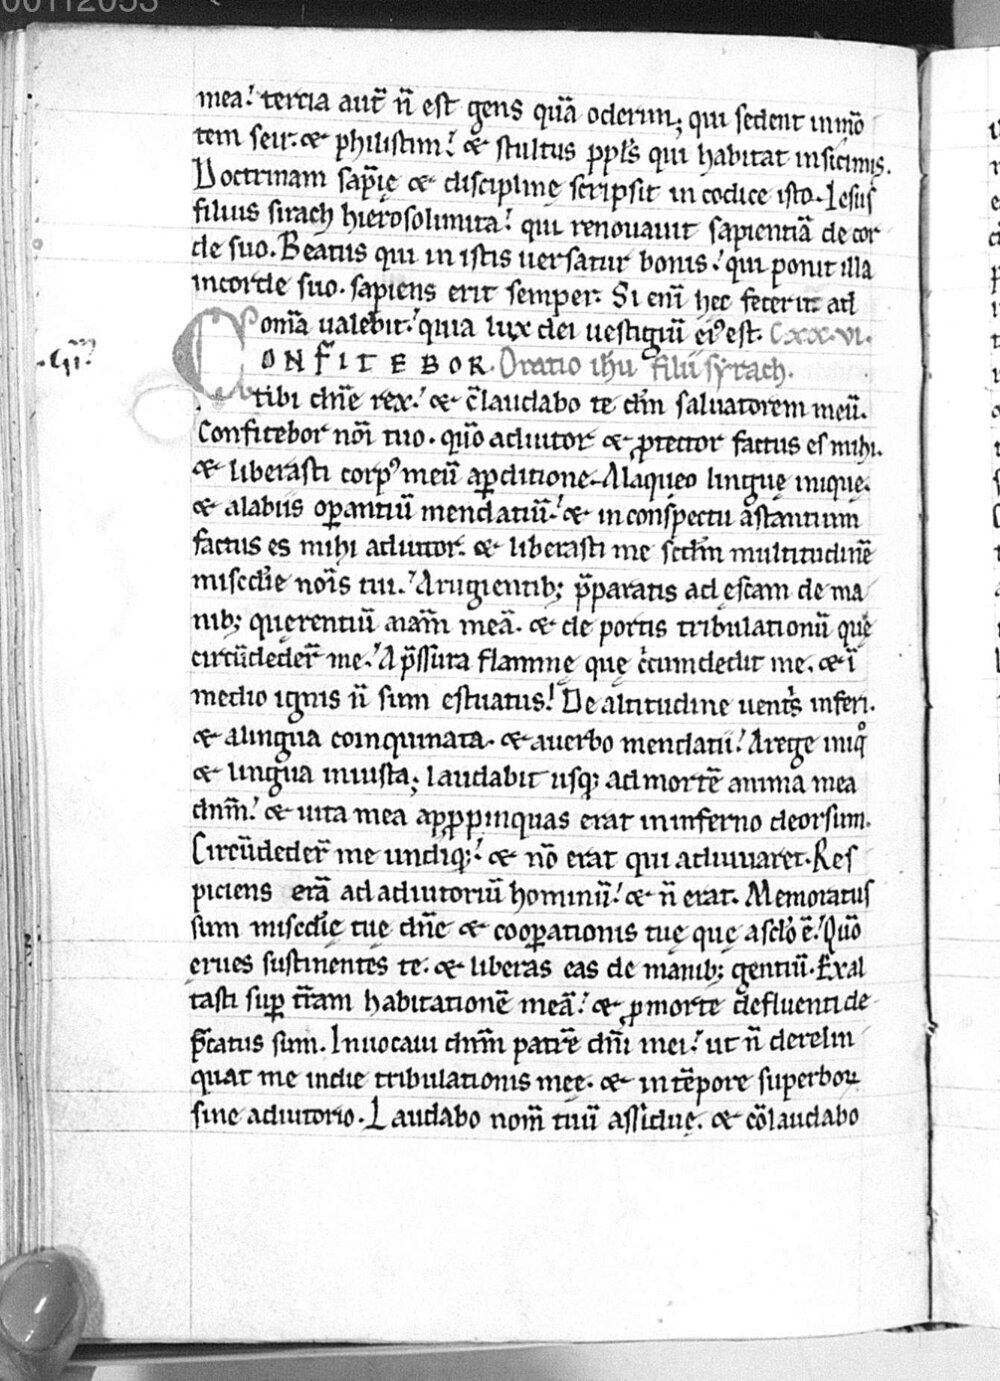 00112053
mea. tertia aut̄ n̄ est gens quā oderim; qui sedent in mō
tem seir. & philistim. & stultus ppl̄s qui habitat in sicimis.
Doctrinam sap̄ię & disciplinę scripsit in codice isto. Iesus
filius sirach hierosolimita. qui renouauit sapientiā de cor
de suo. Beatus qui in istis uersatur bonis. qui ponit illa
in corde suo. sapiens erit semper. Si eni̅ hec fecerit ad
om̄ia ualebit. quia lux dei uestigiū eiꝰ est. C.xx.vi.
.Gī.
CONFITEBOR. Oratio ih̅u filii syrach.
tibi dn̄e rex. & c̄laudabo te dm̄ saluatorem meū.
Confitebor nōi tuo. qūo adiutor & ꝓtector factus es mihi.
& liberasti corpꝰ meū a ꝑditione. A laqueo linguę inique.
& a labiis oꝑantiū mendatiū. & in conspectu astantium
factus es mihi adiutor. & liberasti me scdm̄ multitudinē
misc̄die nōis tui. A rugientib; p̄paratis ad escam de ma
nib; querentiū aīam meā. & de portis tribulationū quę
circūdeder̄ me. A p̄ssura flammę quę c̄cumdedit me. & ī
medio ignis n̄ sum estuatus. De altitudine uent̄s inferi.
& a lingua coinquinata. & a uerbo mendatii. A rege iniqͦ
& lingua iniusta; laudabit usq; ad mortē anima mea
dnm̄. & uita mea apꝓpinquas erat in inferno deorsum.
Circūdeder̄ me undiq;. & nō erat qui adiuuaret. Res
piciens erā ad adiutoriū hominū. & n̄ erat. Memoratus
sum misc̄dię tuę dn̄e & cooꝑationis tuę quę a sc̄lo ē. Qūo
erues sustinentes te. & liberas eas de manib; gentiū. Exal
tasti suꝑ t̄ram habitationē meā. & ꝓ morte defluenti de
p̄catus sum. Inuocaui dnm̄ patrē dn̄i mei. ut n̄ derelin
quat me in die tribulationis mee. & in tēpore superboꝝ
sine adiutorio. Laudabo nom̄ tuū assiduę. & cōlaudabo